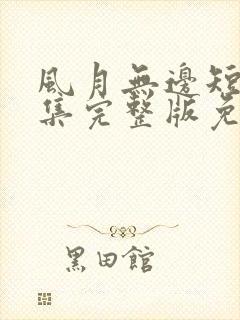 風月無邊短
集完整版免
黑田館